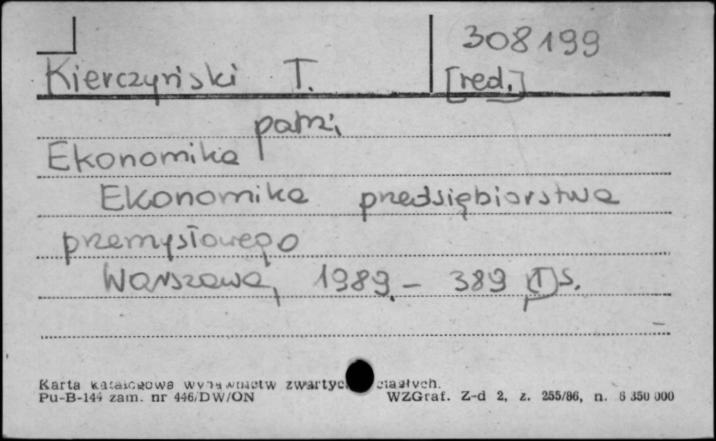 308199
Kierczyński T. [red.]
patrz,
Ekonomika
Ekonomika przedsiębiorstwa
przemysłowego
Warszawa, 1989. - 389 s.
Karta katalogowa wydawnictw zwartych ciągłych.
Pu-B-144 zam. nr 446/DW/ON WZGraf. Z-d 2, z. 255/86, n. 6 350 000